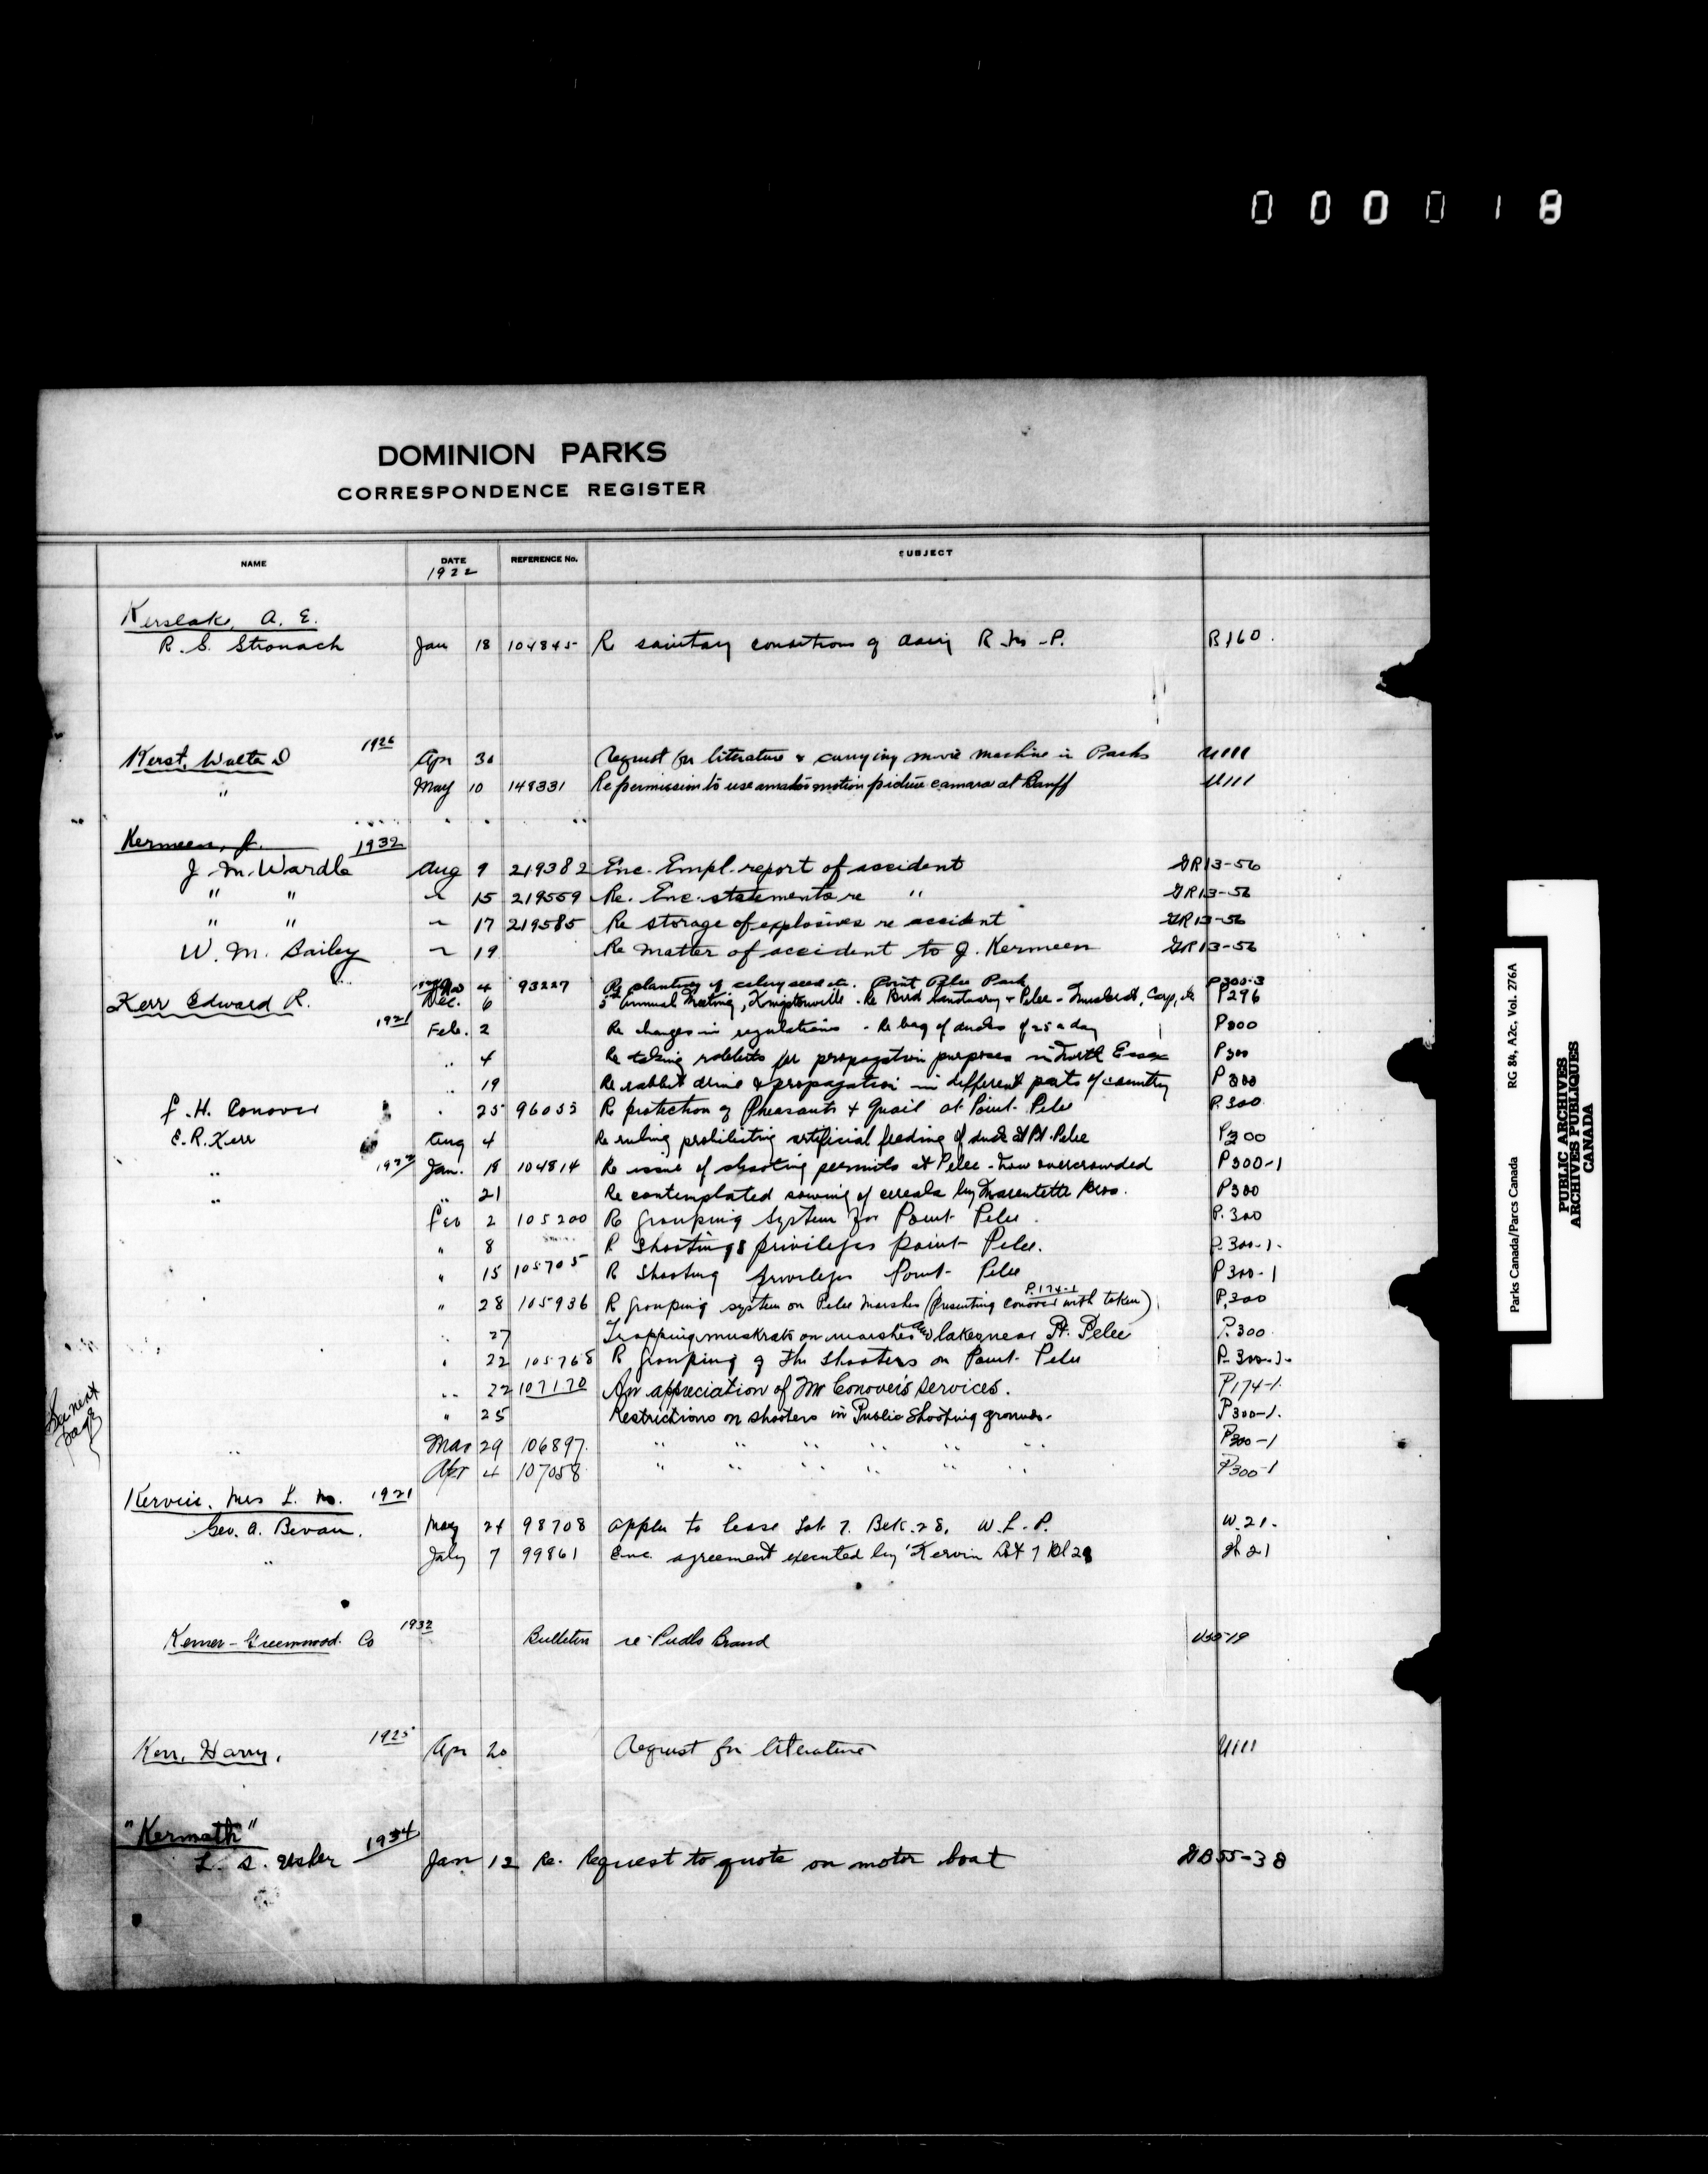 000018
DOMINION PARKS
CORRESPONDENCE REGISTER
NAME DATE REFERENCE No. SUBJECT
1922
Kerslake, A. E.
R. S. Stronach Jan 18 104845 Re sanitary conditions of dairy R M P. B160.
Kerst, Walter D 1926 Apr 30 Request for literature & carrying movie machine in Parks U111
" May 10 148331 Re permission to use amateur motion picture camara at Banff U111
Kermeen, J. 1932
J. M. Wardle Aug 9 219382 Enc. Empl. report of accident GR13-56
" " " 15 219559 Re. Enc. statements re " GR13-56
" " " 17 219585 Re storage of explosives re accident GR13-56
W. M. Bailey " 19 Re Matter of accident to J. Kermeen GR13-56
Nov 4 93227 Re planting of celery seed etc. Point Pelee Park P300-3
Kerr Edward R. Dec. 6 Annual Meeting, Kingsville. Re Bird Sanctuary + Pelee - P296
1921 Feb. 2 Re changes in regulations - Re bag of ducks of 25 a day P300
" 4 Re taking rabbits for propagation purposes in North Essex P300
" 19 Re rabbit drive & propagation in different parts of country P300
F. H. Conover " 25 Re protection of Pheasants & Quail at Point Pelee P.300
E. R. Kerr Aug 4 Re ruling prohibiting artificial feeding of duck at Pt. Pelee P300
" 1922 Jan. 18 104814 Re issue of shooting permits at Pelee - how overcrowded P300-1
" " 21 Re contemplated sowing of cereals by Marentette Bros. P300
Feb 2 105200 Re grouping system for Point Pelee. P.300
" 8 R shooting privileges point Pelee. P.300-1.
" 15 105705 R Shooting privileges Point Pelee P300-1
P.174-1
" 28 105936 R grouping system on Pelee Marshes (presenting Conover with token) P.300
" 27 Trapping muskrats on marshes and lakes near Pt. Pelee P.300
" 22 105768 R grouping of the shooters on Point Pelee
" 22 107170 An appreciation of Mr Conover's services. P174-1.
" 25 Restrictions on shooters in Public Shooting grounds. P300-1.
See next page
" Mar 29 106897 " " " " " " P300-1
Apr 4 107058 " " " " " " P300-1
Kervin, Mrs L. M. 1921
Geo. A. Bevan. May 24 98708 Appln to lease Lot 7. Blk. 28, W. L. P. W.21.
" July 7 99861 Enc. agreement executed by Kervin Lot 7 Bl 28 21
Kerner-Greenwood Co 1932 Bulletin re-Pudlo Brand
Kerr, Harry. 1925 Apr 20 Request for literature U111
"Kermath"
L. S. Usher 1934 Jan 12 Re. Request to quote on motor boat GB55-38
Parks Canada/Parcs Canada RG 84, A2c, Vol. 276A
PUBLIC ARCHIVES
ARCHIVES PUBLIQUES
CANADA